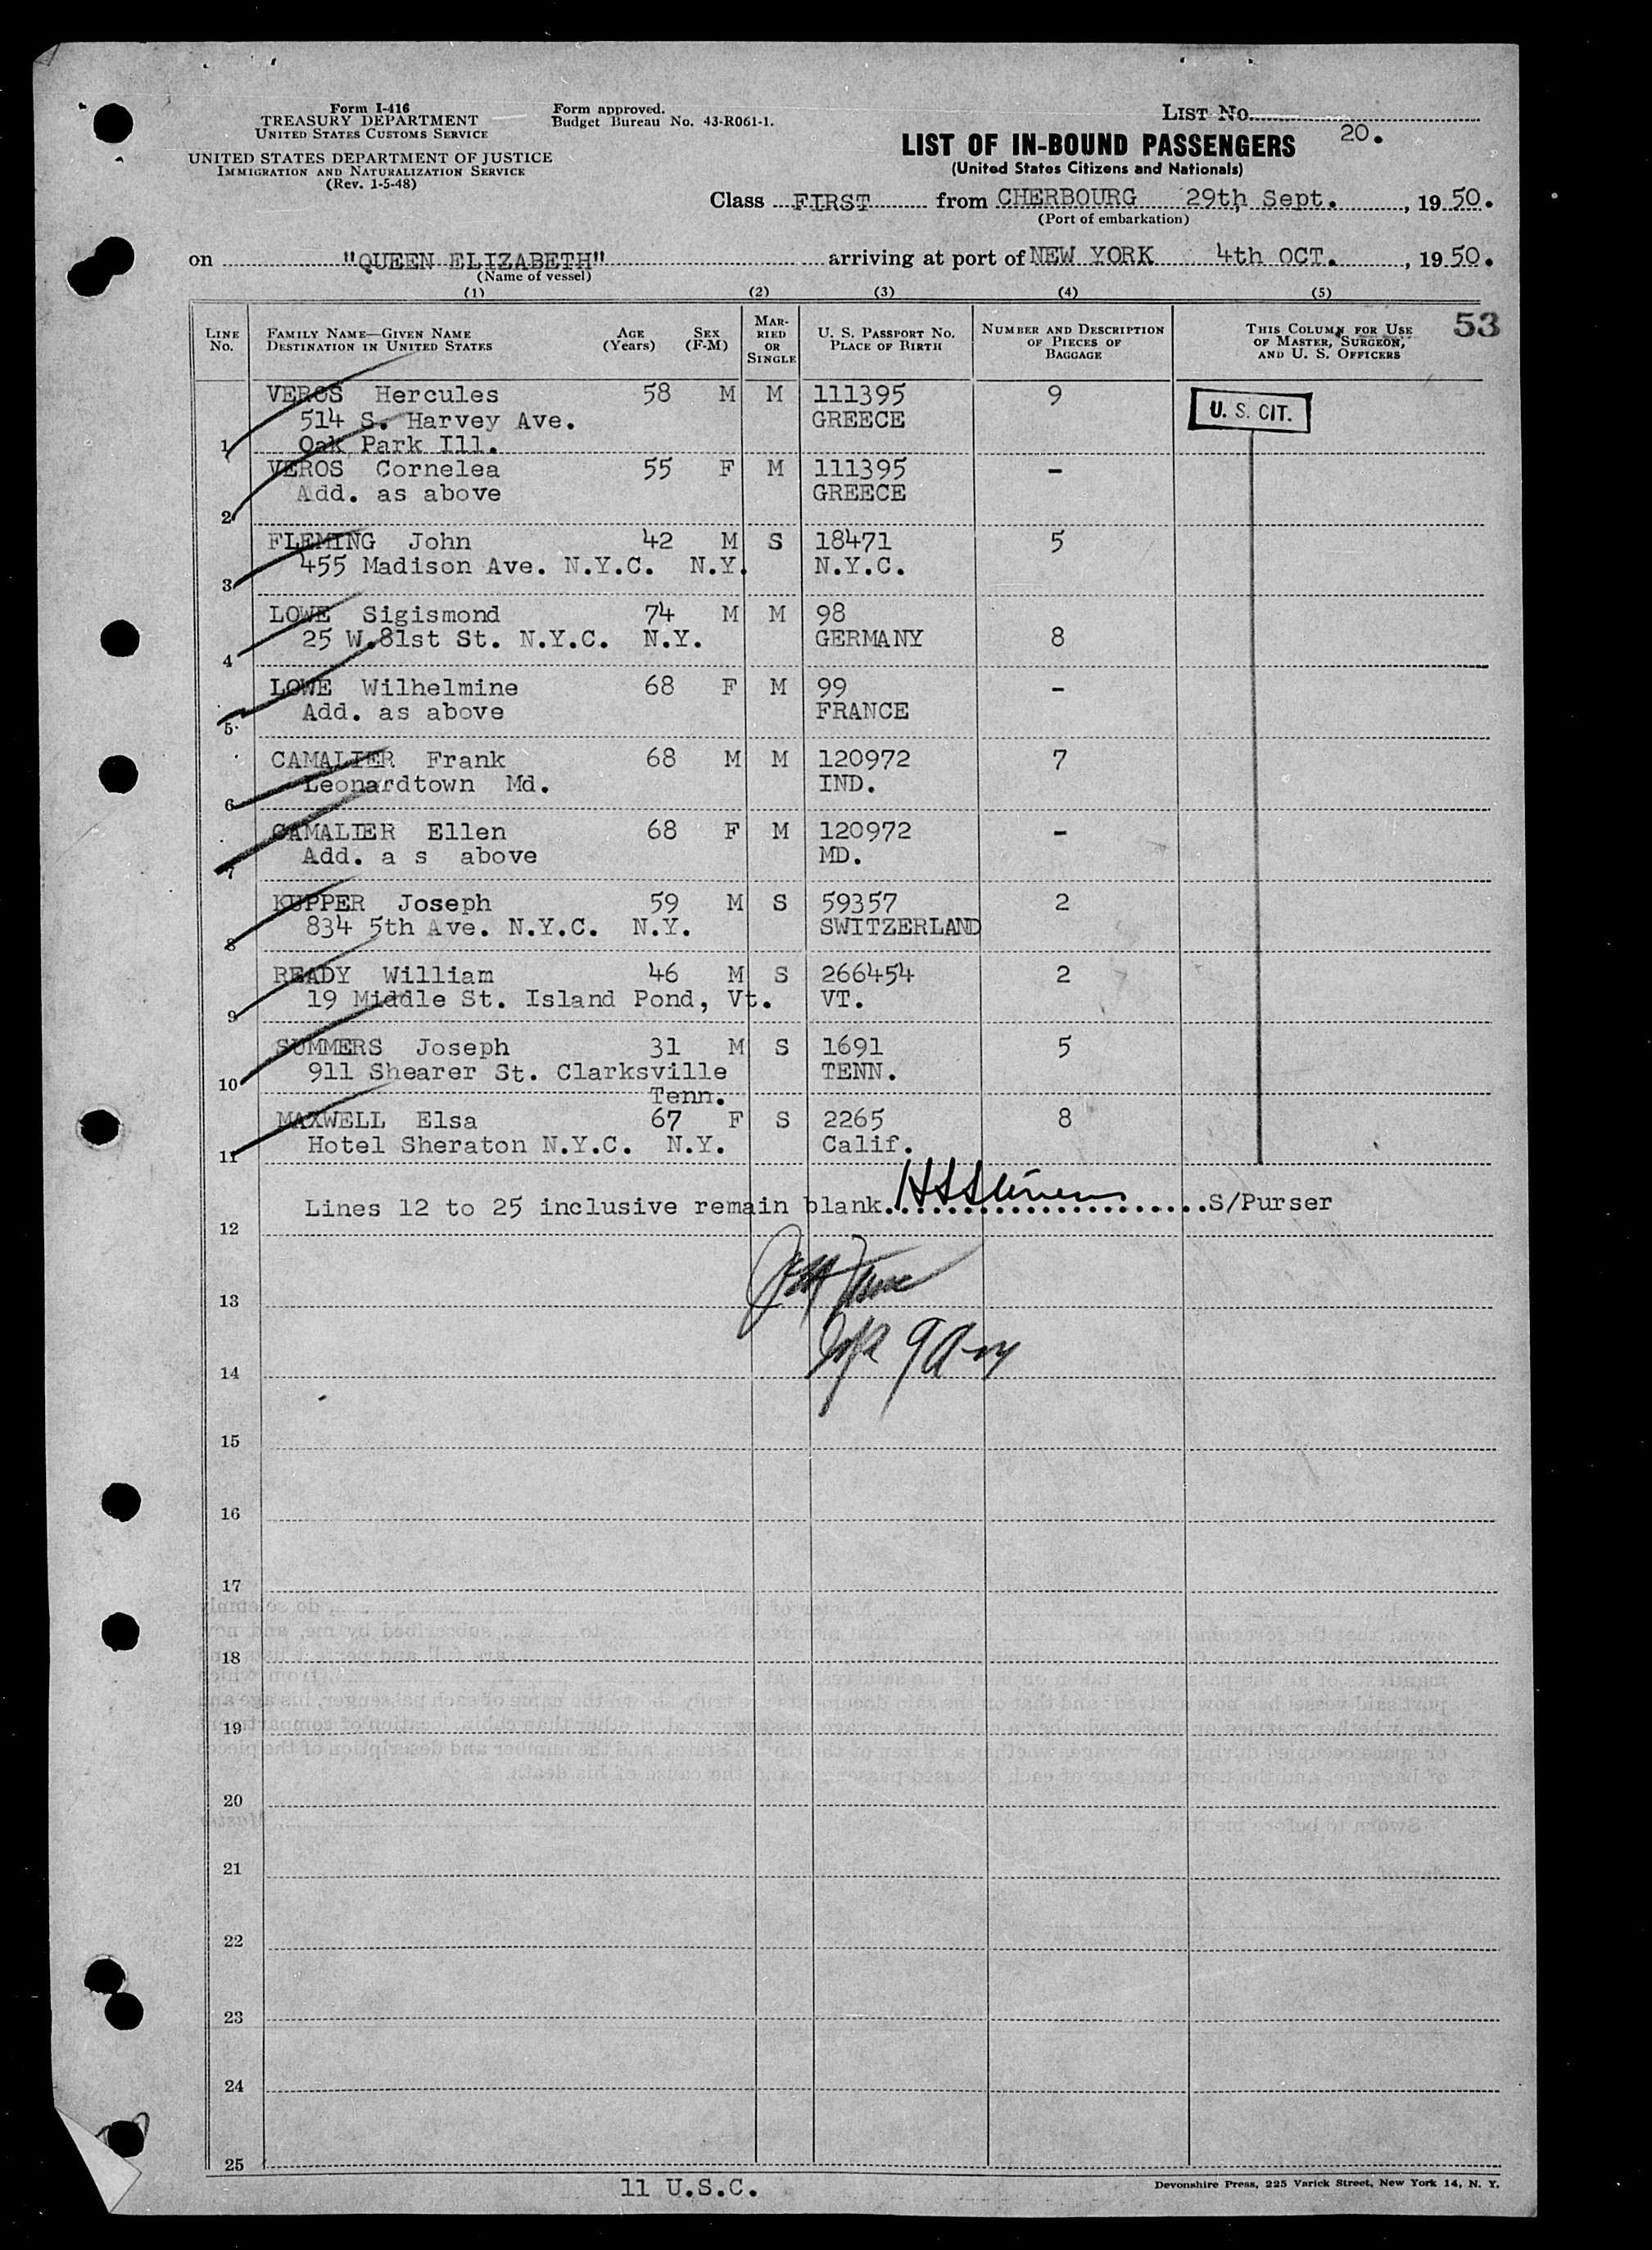 Form I-416
TREASURY DEPARTMENT
UNITED STATES CUSTOMS SERVICE
UNITED STATES DEPARTMENT OF JUSTICE
IMMIGRATION AND NATURALIZATION SERVICE
(Rev. 1-5-48)
Form approved.
Budget Bureau No. 43-R061-1.
LIST No.
20.
LIST OF IN-BOUND PASSENGERS
(United States Citizens and Nationals)
Class FIRST from CHERBOURG 29th Sept., 1950.
(Port of embarkation)
on "QUEEN ELIZABETH" arriving at port of NEW YORK 4th OCT., 1950.
(Name of vessel)
(1) (2) (3) (4) (5)
53
LINE No. FAMILY NAME—GIVEN NAME DESTINATION IN UNITED STATES AGE (Years) SEX (F-M) MARRIED OR SINGLE U. S. PASSPORT No. PLACE OF BIRTH NUMBER AND DESCRIPTION OF PIECES OF BAGGAGE THIS COLUMN FOR USE OF MASTER, SURGEON, AND U. S. OFFICERS
VEROS Hercules 58 M M 111395 9 U. S. CIT.
514 S. Harvey Ave. GREECE
1 Oak Park Ill.
VEROS Cornelea 55 F M 111395 -
Add. as above GREECE
2
FLEMING John 42 M S 18471 5
455 Madison Ave. N.Y.C. N.Y. N.Y.C.
3
LOWE Sigismond 74 M M 98
25 W.81st St. N.Y.C. N.Y. GERMANY 8
4
LOWE Wilhelmine 68 F M 99 -
Add. as above FRANCE
5
CAMALIER Frank 68 M M 120972 7
Leonardtown Md. IND.
6
CAMALIER Ellen 68 F M 120972 -
Add. a s above MD.
7
KUPPER Joseph 59 M S 59357 2
834 5th Ave. N.Y.C. N.Y. SWITZERLAND
8
READY William 46 M S 266454 2
19 Middle St. Island Pond, Vt. VT.
9
SUMMERS Joseph 31 M S 1691 5
911 Shearer St. Clarksville TENN.
10 Tenn.
MAXWELL Elsa 67 F S 2265 8
Hotel Sheraton N.Y.C. N.Y. Calif.
11
Lines 12 to 25 inclusive remain blank. S/Purser
12
13
14
15
16
17
18
19
20
21
22
23
24
25
11 U.S.C.
Devonshire Press, 225 Varick Street, New York 14, N. Y.